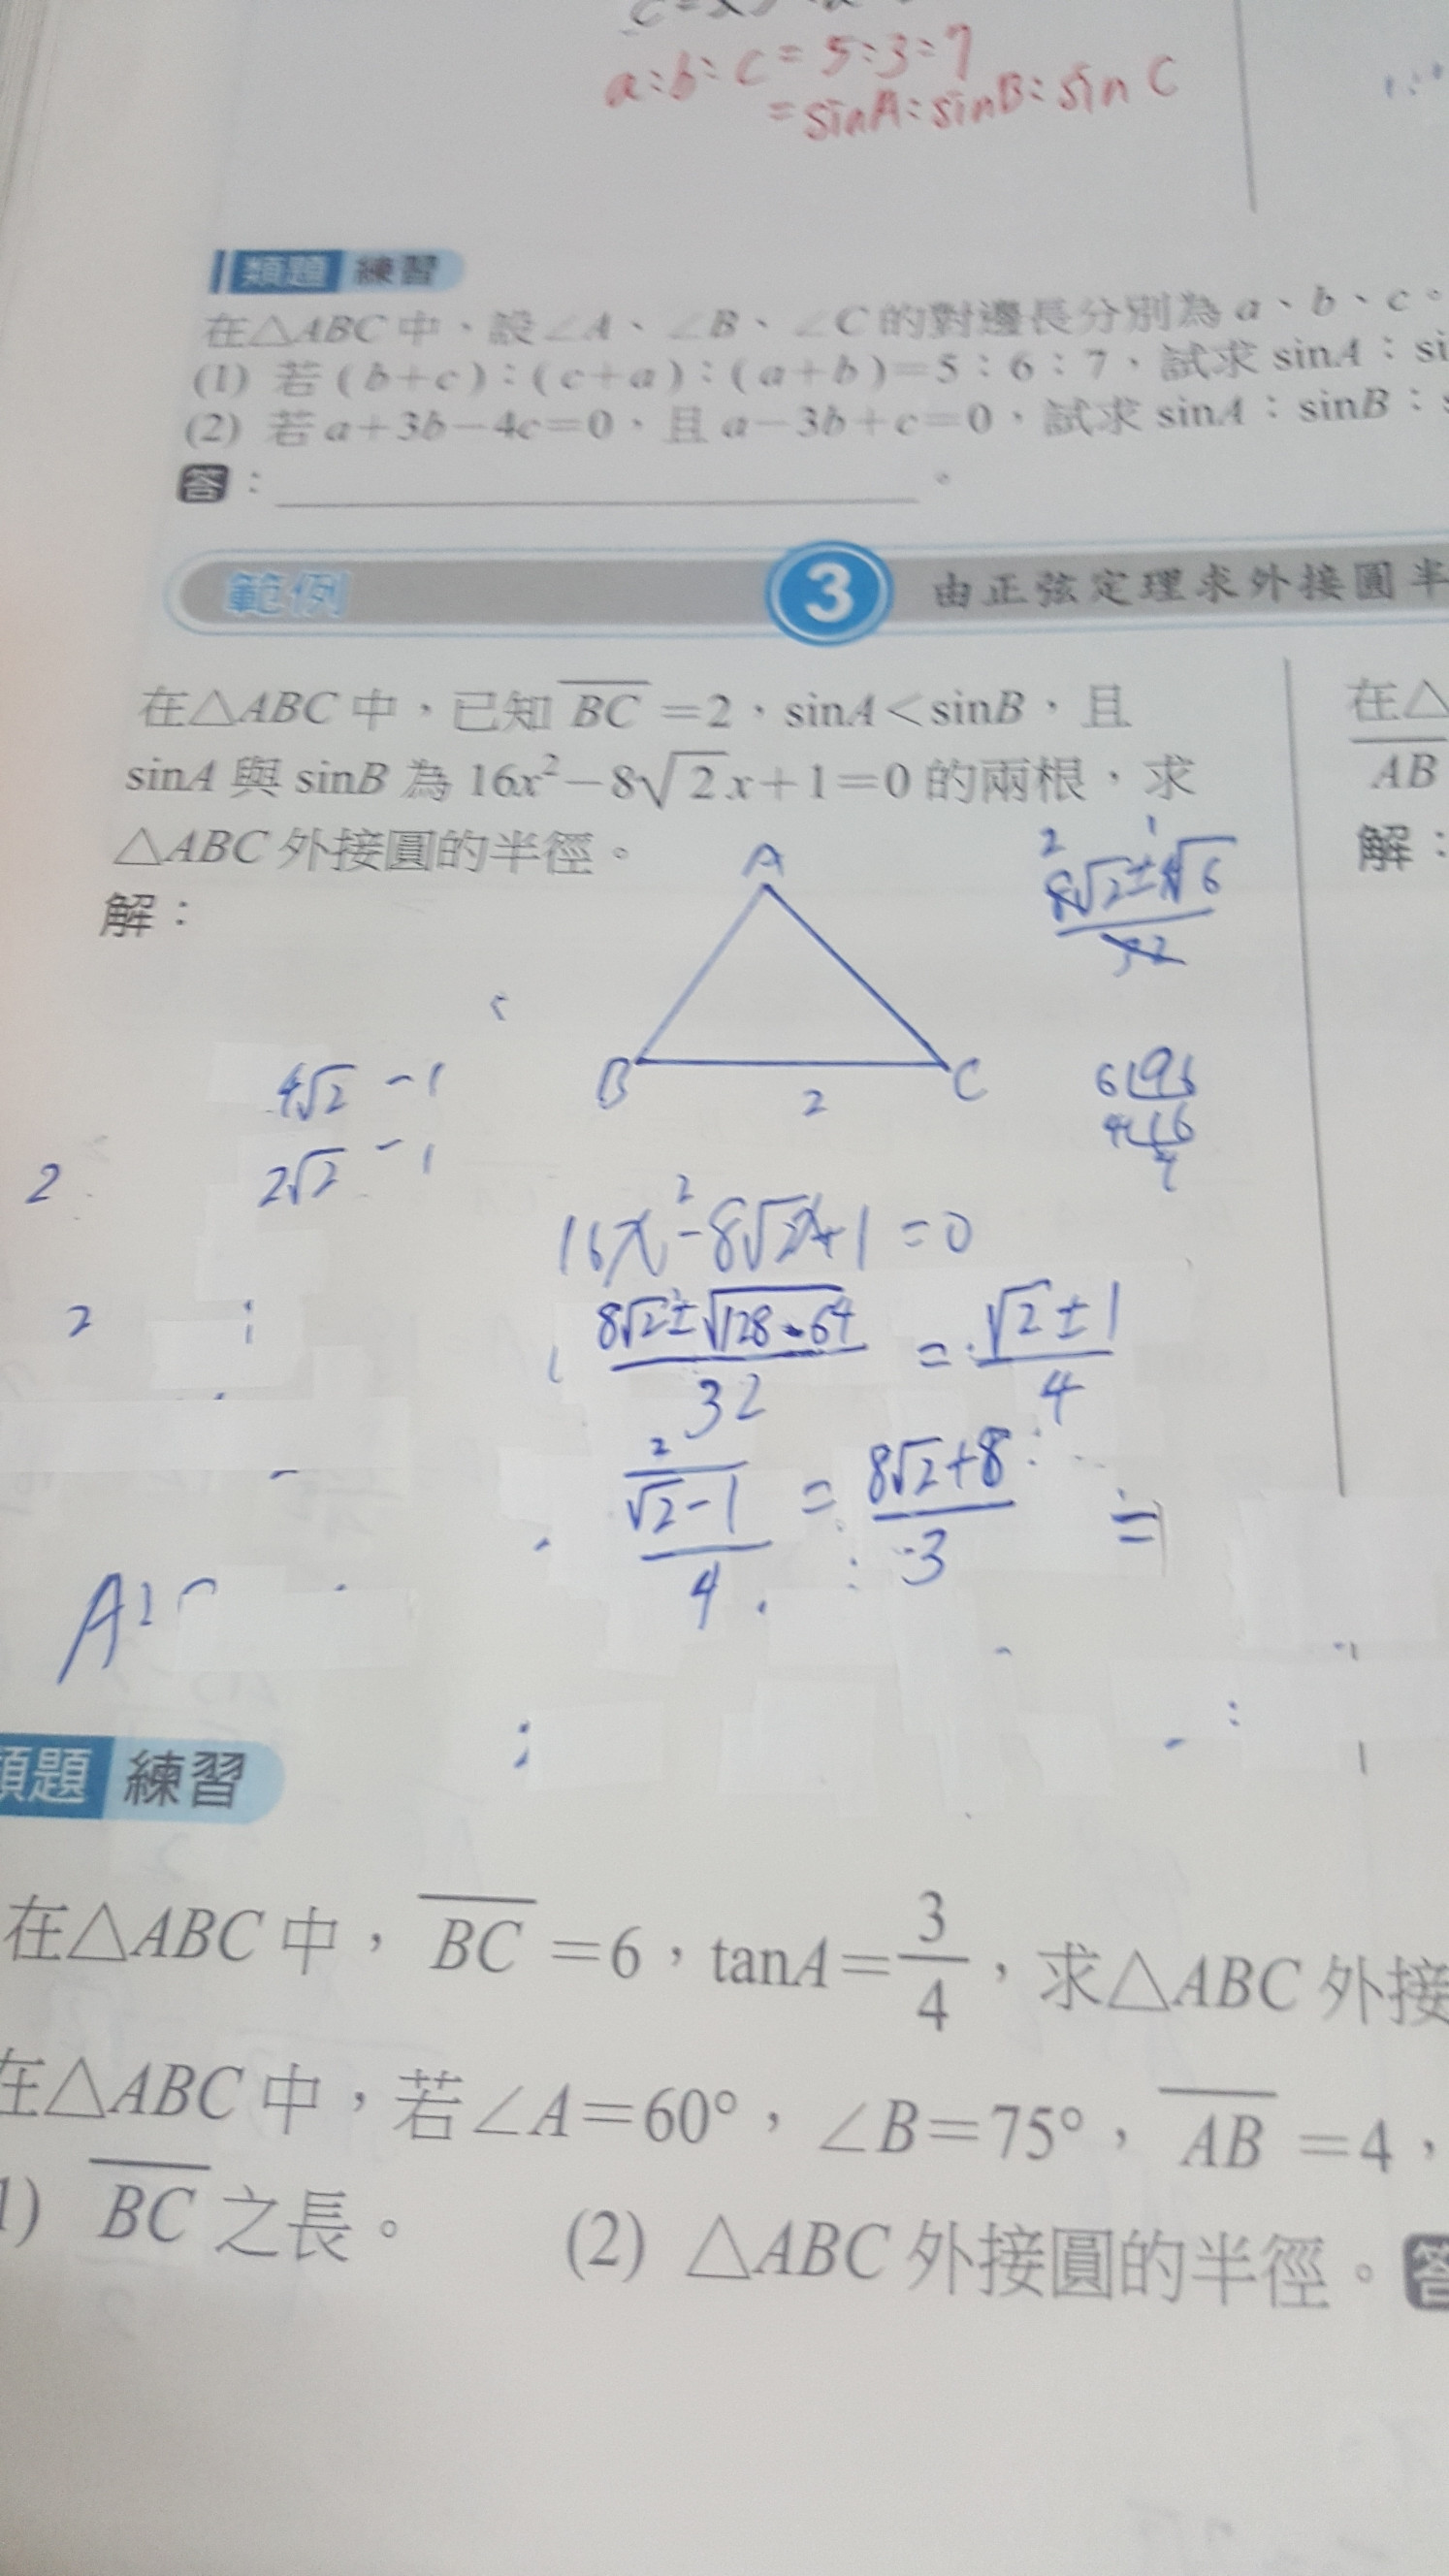 a:b:c=5:3:7
=sinA:sinB:sin C
類題 練習
在△ABC中，設∠A、∠B、∠C的對邊長分別為a、b、c。
(1) 若(b+c):(c+a):(a+b)=5:6:7，試求sinA:si
(2) 若a+3b-4c=0，且a-3b+c=0，試求sinA:sinB:
答：
範例 3 由正弦定理求外接圓半
在△ABC中，已知BC=2，sinA<sinB，且
sinA與sinB為16x²-8√2x+1=0的兩根，求
△ABC外接圓的半徑。
解：
在△
AB
解：
A
B
C
2
4√2 -1
2√2 -1
2
16x²-8√2x+1=0
2
8√2±√128-64/32 = √2±1/4
2/√2-1/4 = 8√2+8/3 =
類題 練習
在△ABC中，BC=6，tanA=3/4，求△ABC外接
在△ABC中，若∠A=60°，∠B=75°，AB=4，
1) BC之長。 (2) △ABC外接圓的半徑。答